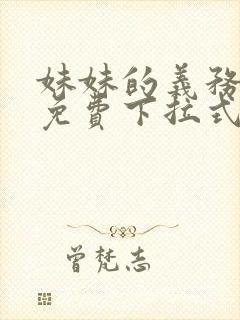 妹妹的義務
免費下拉式
曾梵志